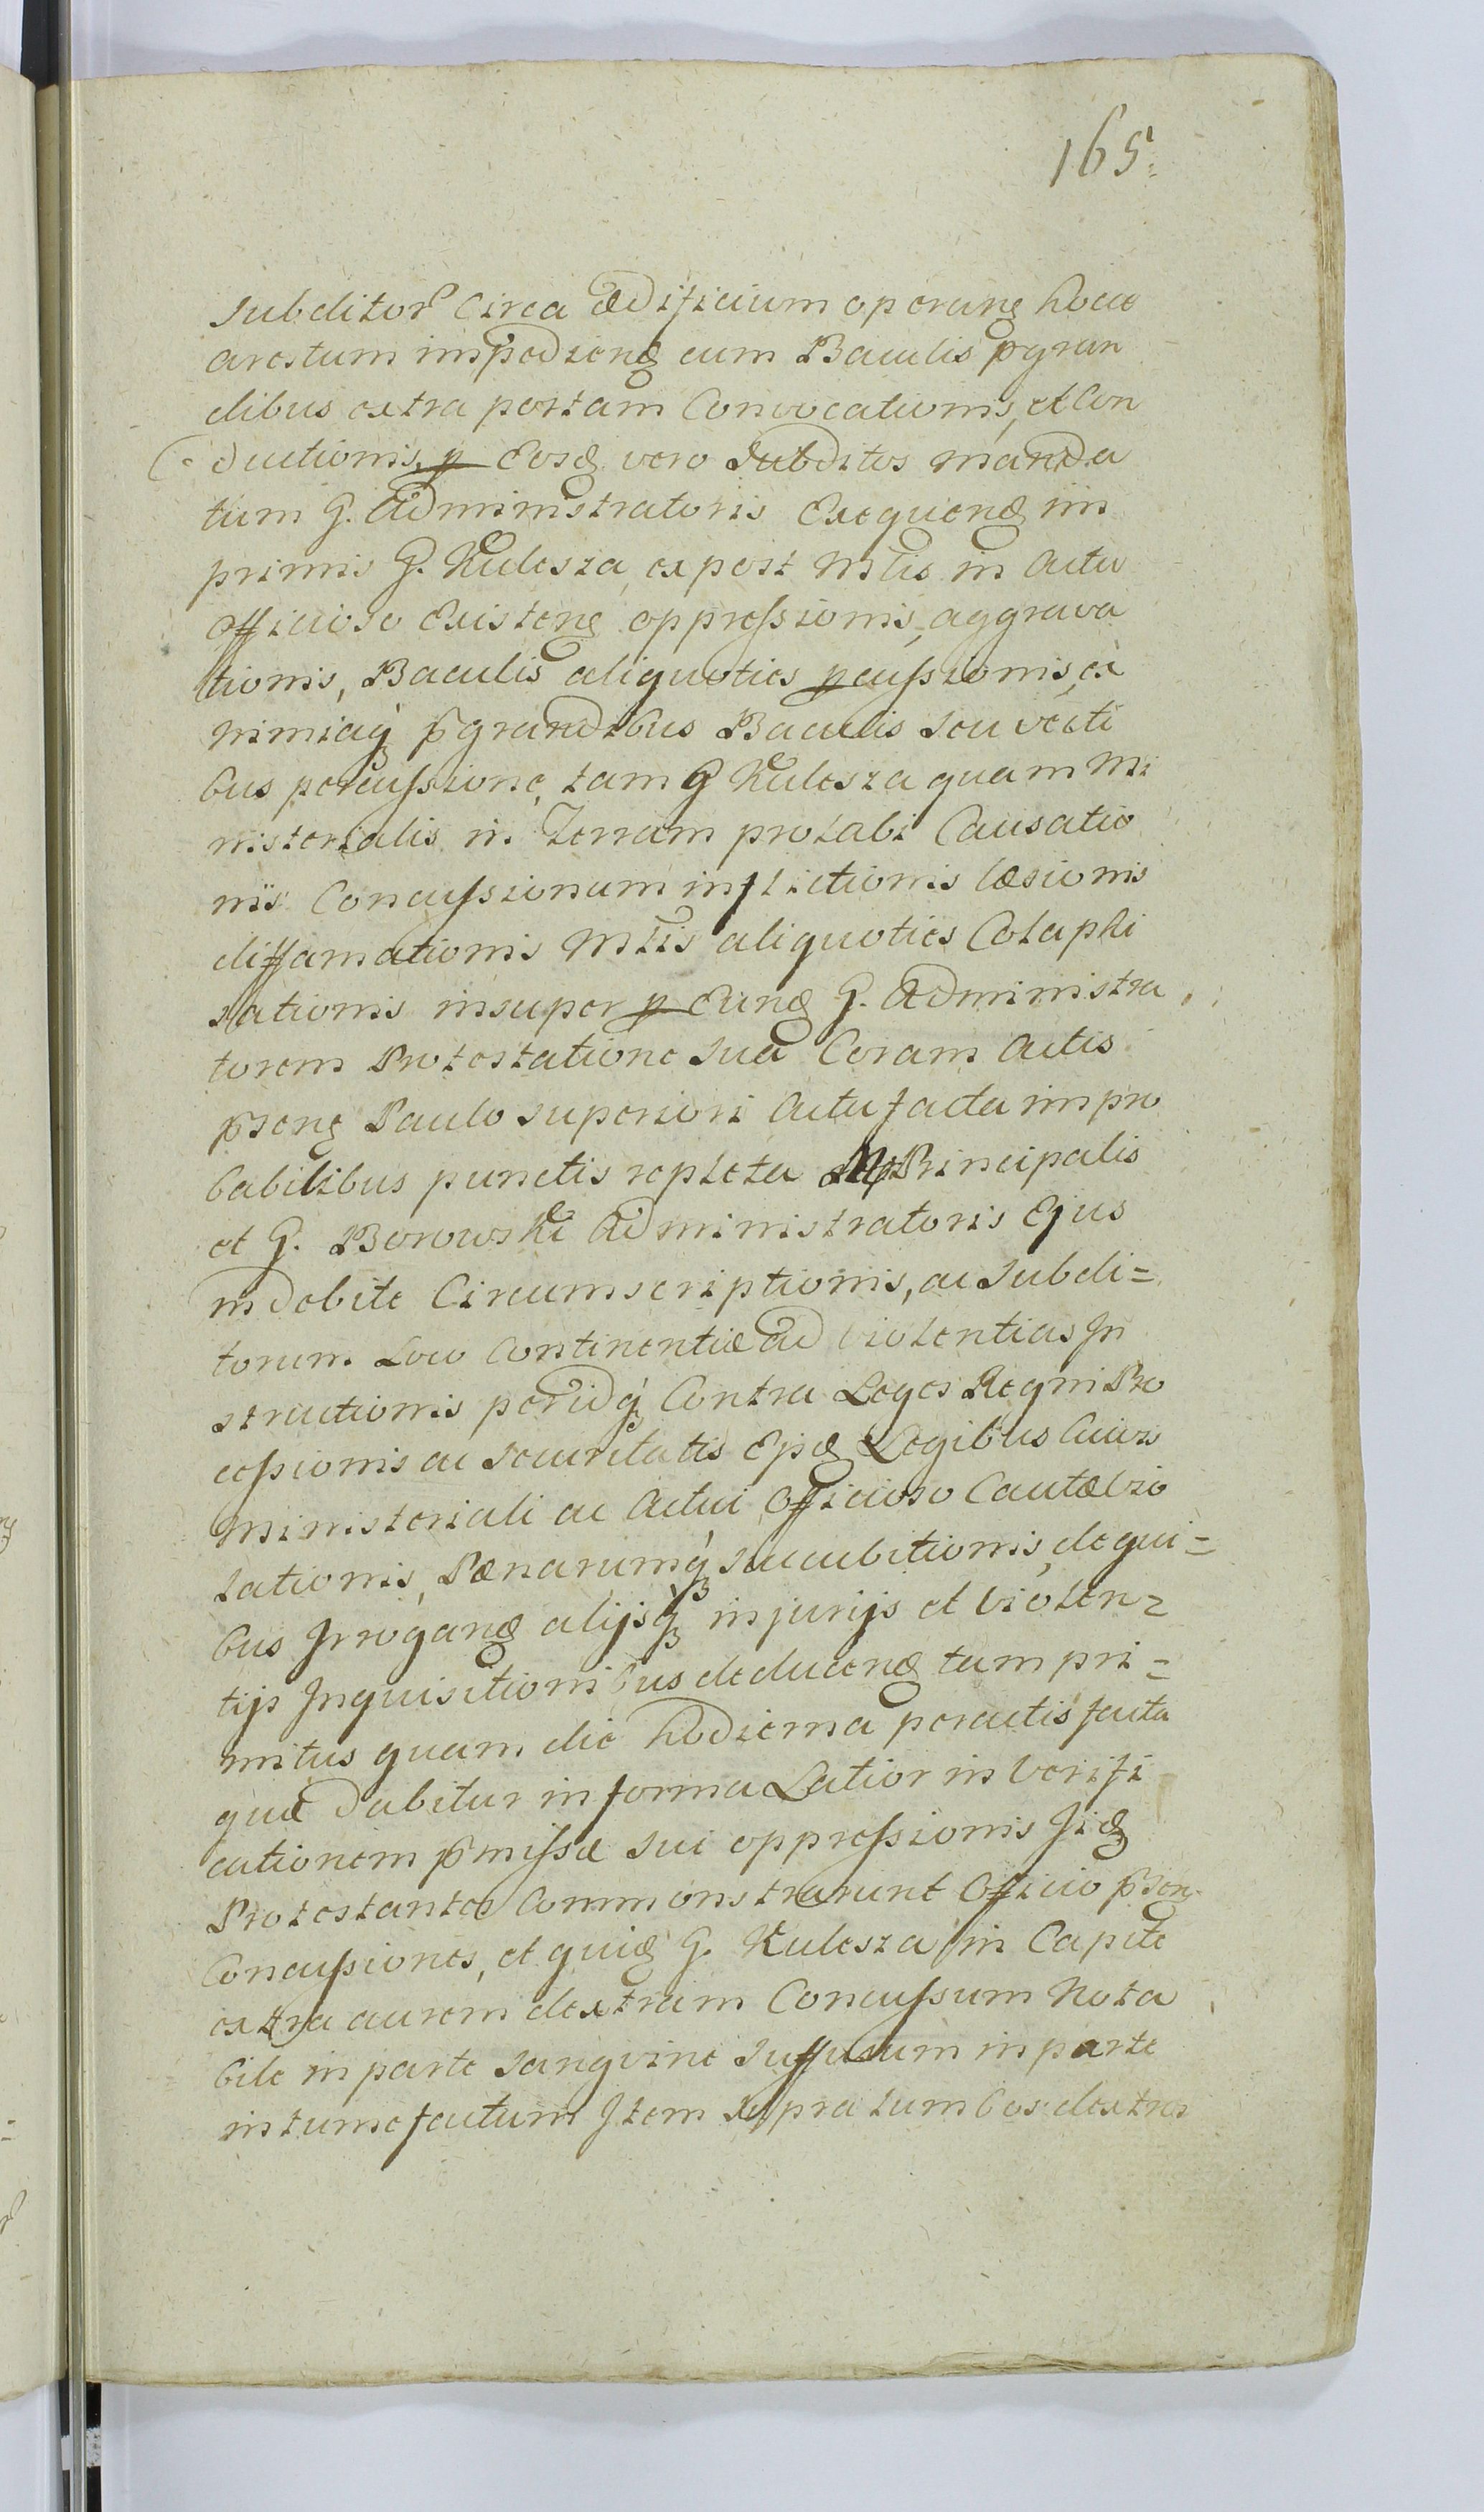 165.
Subditor Circa ædificium operanꝫ hocce
arestum impedienꝫ cum Baculis pgran
dibus extra portam Convocationis, et Con
ductionis, p Eosꝫ vero Subditos manda
tum G. Administratoris Exequenꝫ im
primis G. Kulesza, ex post Mlis in Actu
officioso Existenꝫ oppressionis, aggrava
tionis, Baculis aliquoties pcussionis, ex
nimiaq pgrandibus Baculis seu vecti
bus percussione, tam G Kulesza quam Mi
nisterialis in Terram prolabi Causatio
nis Concussionum inflictionis læsionis
diffamationis Mlis aliquoties Colaphi
sationis insuper p Eunꝫ G. Administra
torem Protestatione sua Coram Actis
psenꝫ Paulo superiori Actu facta impro
babilibus punctis repleta Principalis
et G. Borowski Administratoris Ejus
indebite Circumscriptionis, ac Subdi=
torum Loco Continentiæ ad violentias In
structionis peridq Contra Leges Regni Pro
cessionis ac securitatis Ejꝫ Legibus Cuivis
Ministeriali ac Actui Officioso Cautæ vio
lationis, Pænarumq succubitionis, de qui=
bus Irroganꝫ alijsq injurijs et violen=
tijs Inquisitionibus deducenꝫ tam pri=
mitus quam die hodierna peractis facta
quæ dabitur in forma Latior in Verifi
cationem pmissæ sui oppressionis Iiꝫ
Protestantes Commonstrarunt Officio psen
Concussiones, et quiꝫ G. Kulesza in Capite
extra aurem dextram Concussum Nota
bile in parte sangvine suffusum in parte
intumefactum Item supra lumbos dextros